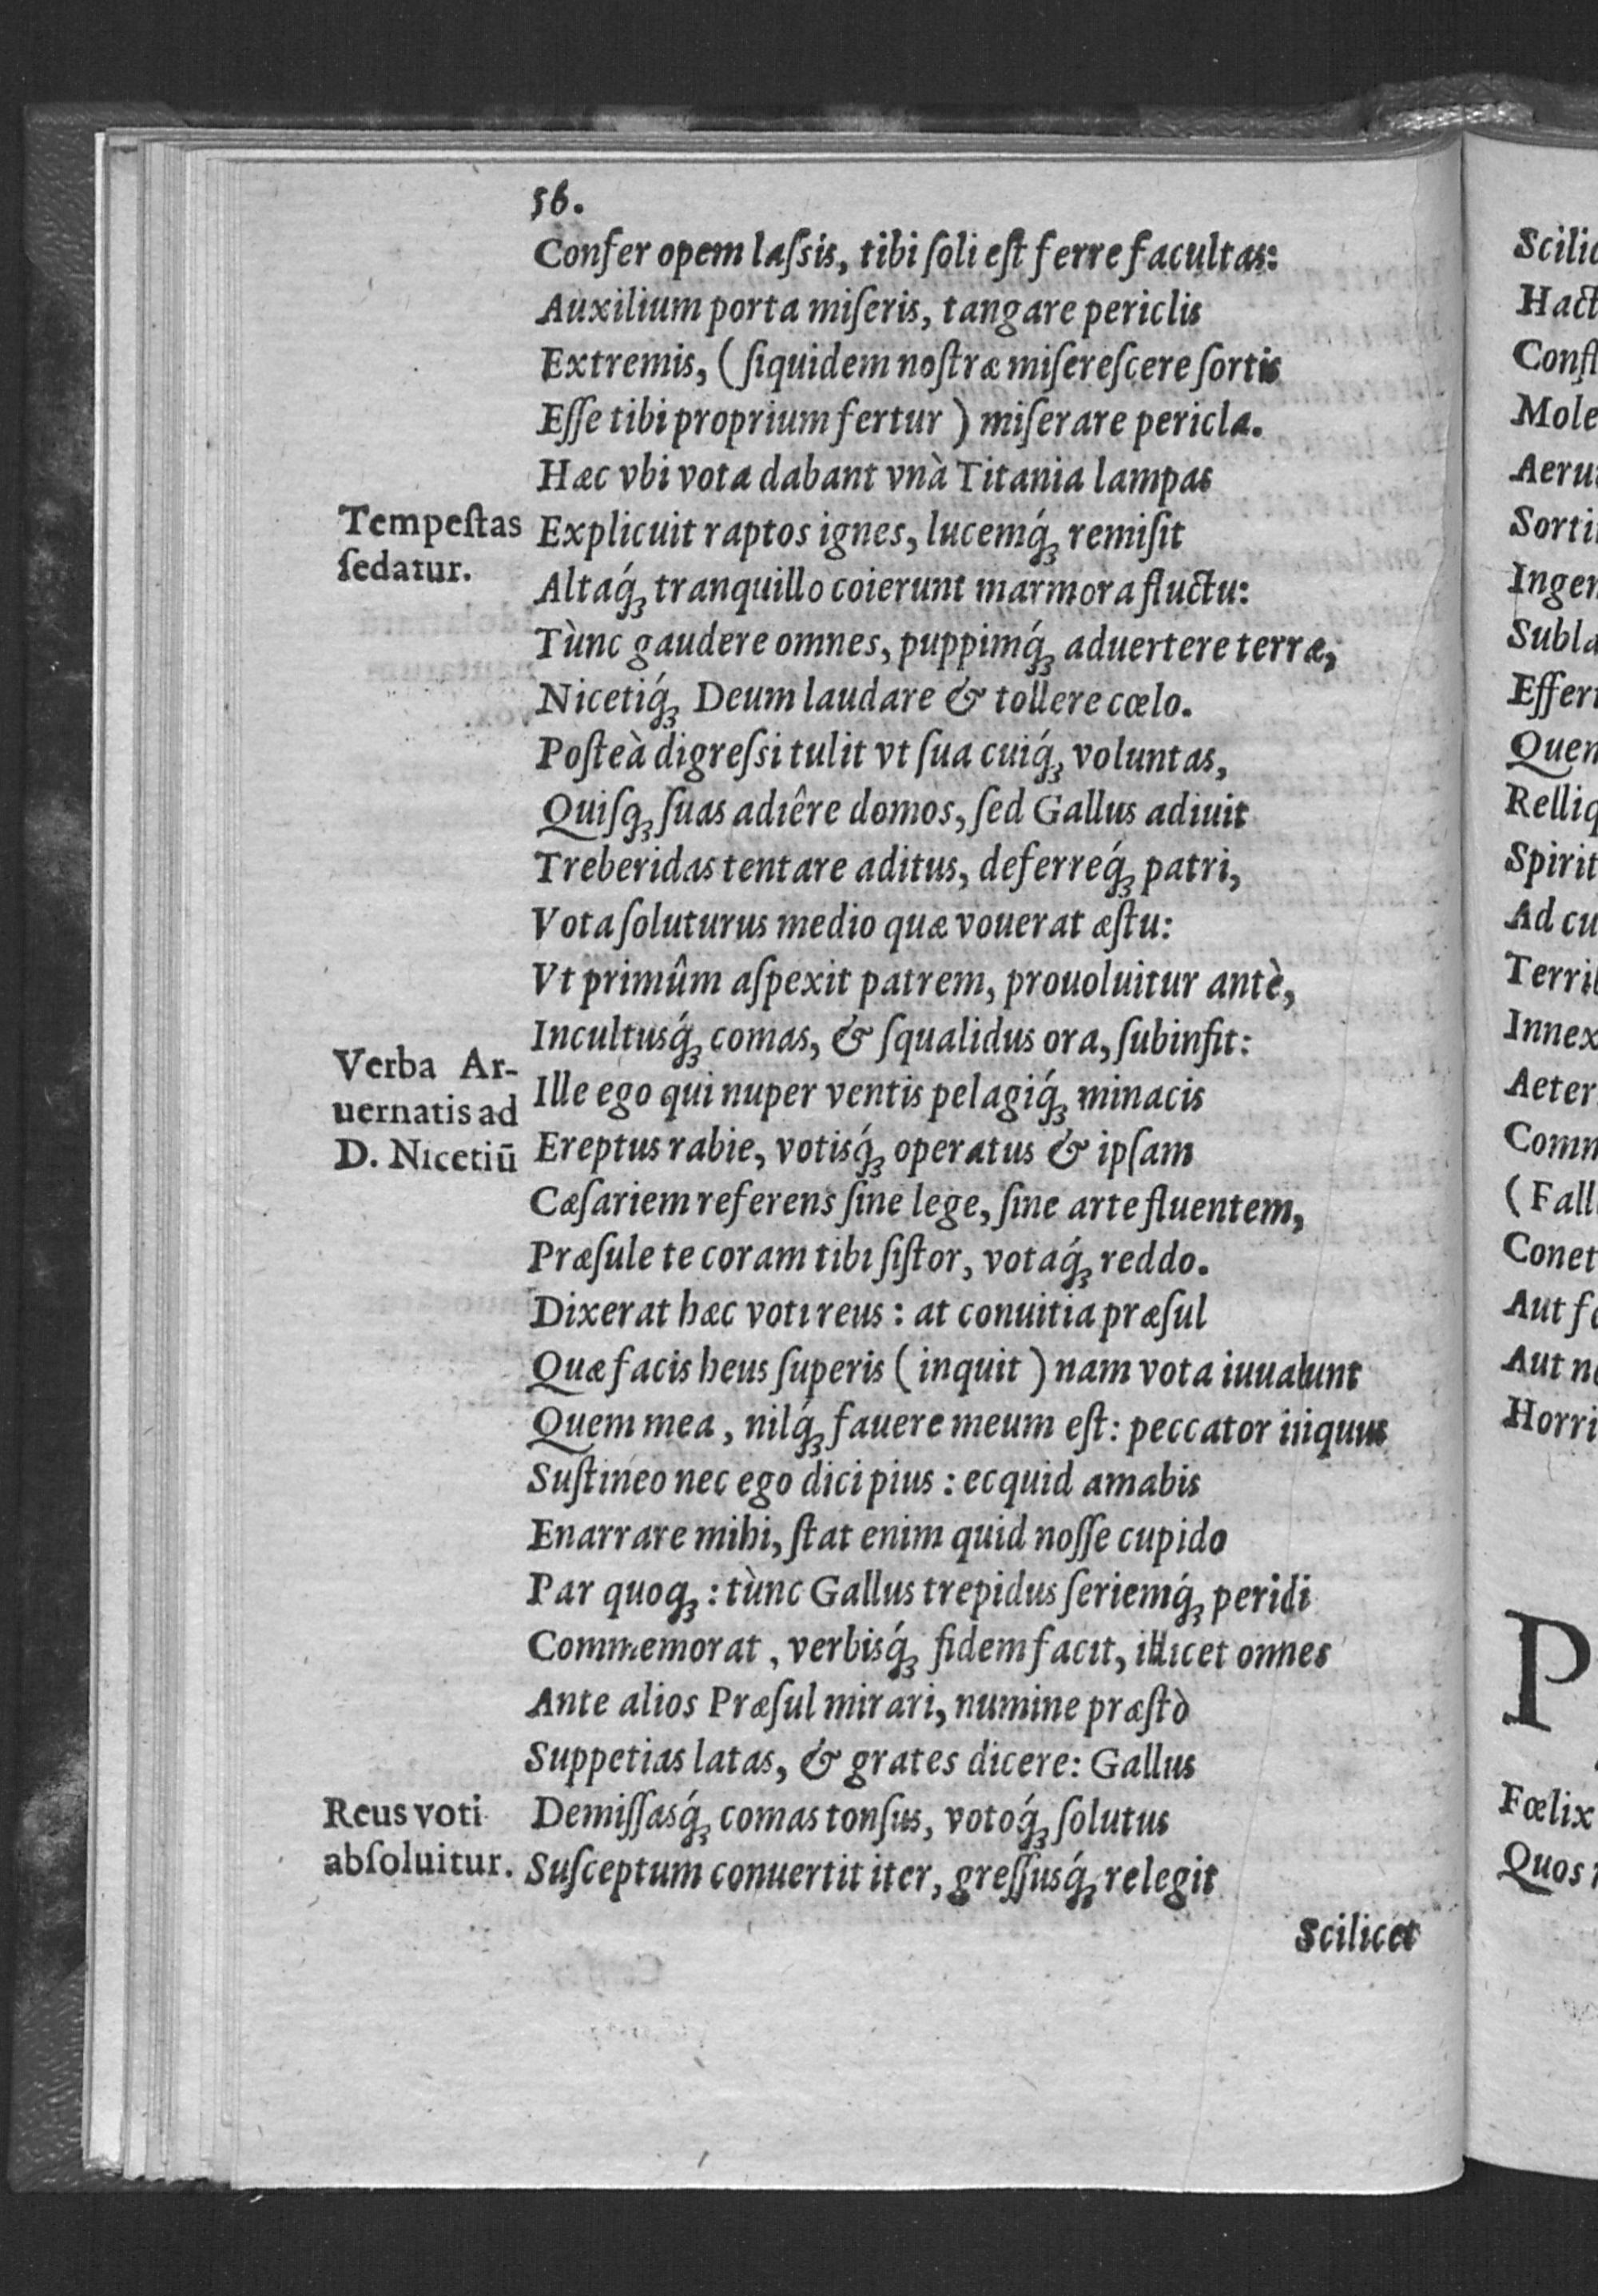 56.
Confer opem laſsis, tibi ſoli eſt ferre facultas:
Auxilium porta miſeris, tangare periclis
Extremis, (ſiquidem noſtræ miſereſcere ſortis
Eſſe tibi proprium fertur) miſerare pericla.
Hæc vbi vota dabant vnà Titania lampas
Tempeſtas
ſedatur.
Explicuit raptos ignes, lucemq́ꝫ remiſit
Altaq́ꝫ tranquillo coierunt marmora fluctu:
Tùnc gaudere omnes, puppimq́ꝫ aduertere terræ,
Nicetiq́ꝫ Deum laudare & tollere cœlo.
Poſteà digreſsi tulit vt ſua cuiq́ꝫ voluntas,
Quiſqꝫ ſuas adiêre domos, ſed Gallus adiuit
Treberidas tentare aditus, deferreq́ꝫ patri,
Vota ſoluturus medio quæ vouerat æſtu:
Vt primûm aſpexit patrem, prouoluitur antè,
Incultusq́ꝫ comas, & ſqualidus ora, ſubinfit:
Verba Ar-
uernatis ad
D. Nicetiū
Ille ego qui nuper ventis pelagiq́ꝫ minacis
Ereptus rabie, votisq́ꝫ operatus & ipſam
Cæſariem referens ſine lege, ſine arte fluentem,
Præſule te coram tibi ſiſtor, votaq́ꝫ reddo.
Dixerat hæc voti reus: at conuitia præſul
Quæ facis heus ſuperis (inquit) nam vota iuuabunt
Quem mea, nilq́ꝫ fauere meum eſt: peccator iniquus
Suſtineo nec ego dici pius: ecquid amabis
Enarrare mihi, ſtat enim quid noſſe cupido
Par quoqꝫ: tùnc Gallus trepidus ſeriemq́ꝫ peridi
Commemorat, verbisq́ꝫ fidem facit, illicet omnes
Ante alios Præſul mirari, numine præſtò
Suppetias latas, & grates dicere: Gallus
Reus voti
abſoluitur.
Demiſſasq́ꝫ comas tonſus, votoq́ꝫ ſolutus
Suſceptum conuertit iter, greſſusq́ꝫ relegit
Scilicet
Scilic
Hact
Confl
Mole
Aeru
Sorti
Inger
Subla
Effer
Quem
Relliq
Spirit
Ad cu
Terri
Innex
Aeter
Comm
(Fall
Conet
Aut f
Aut n
Horri
P
Fœlix
Quos